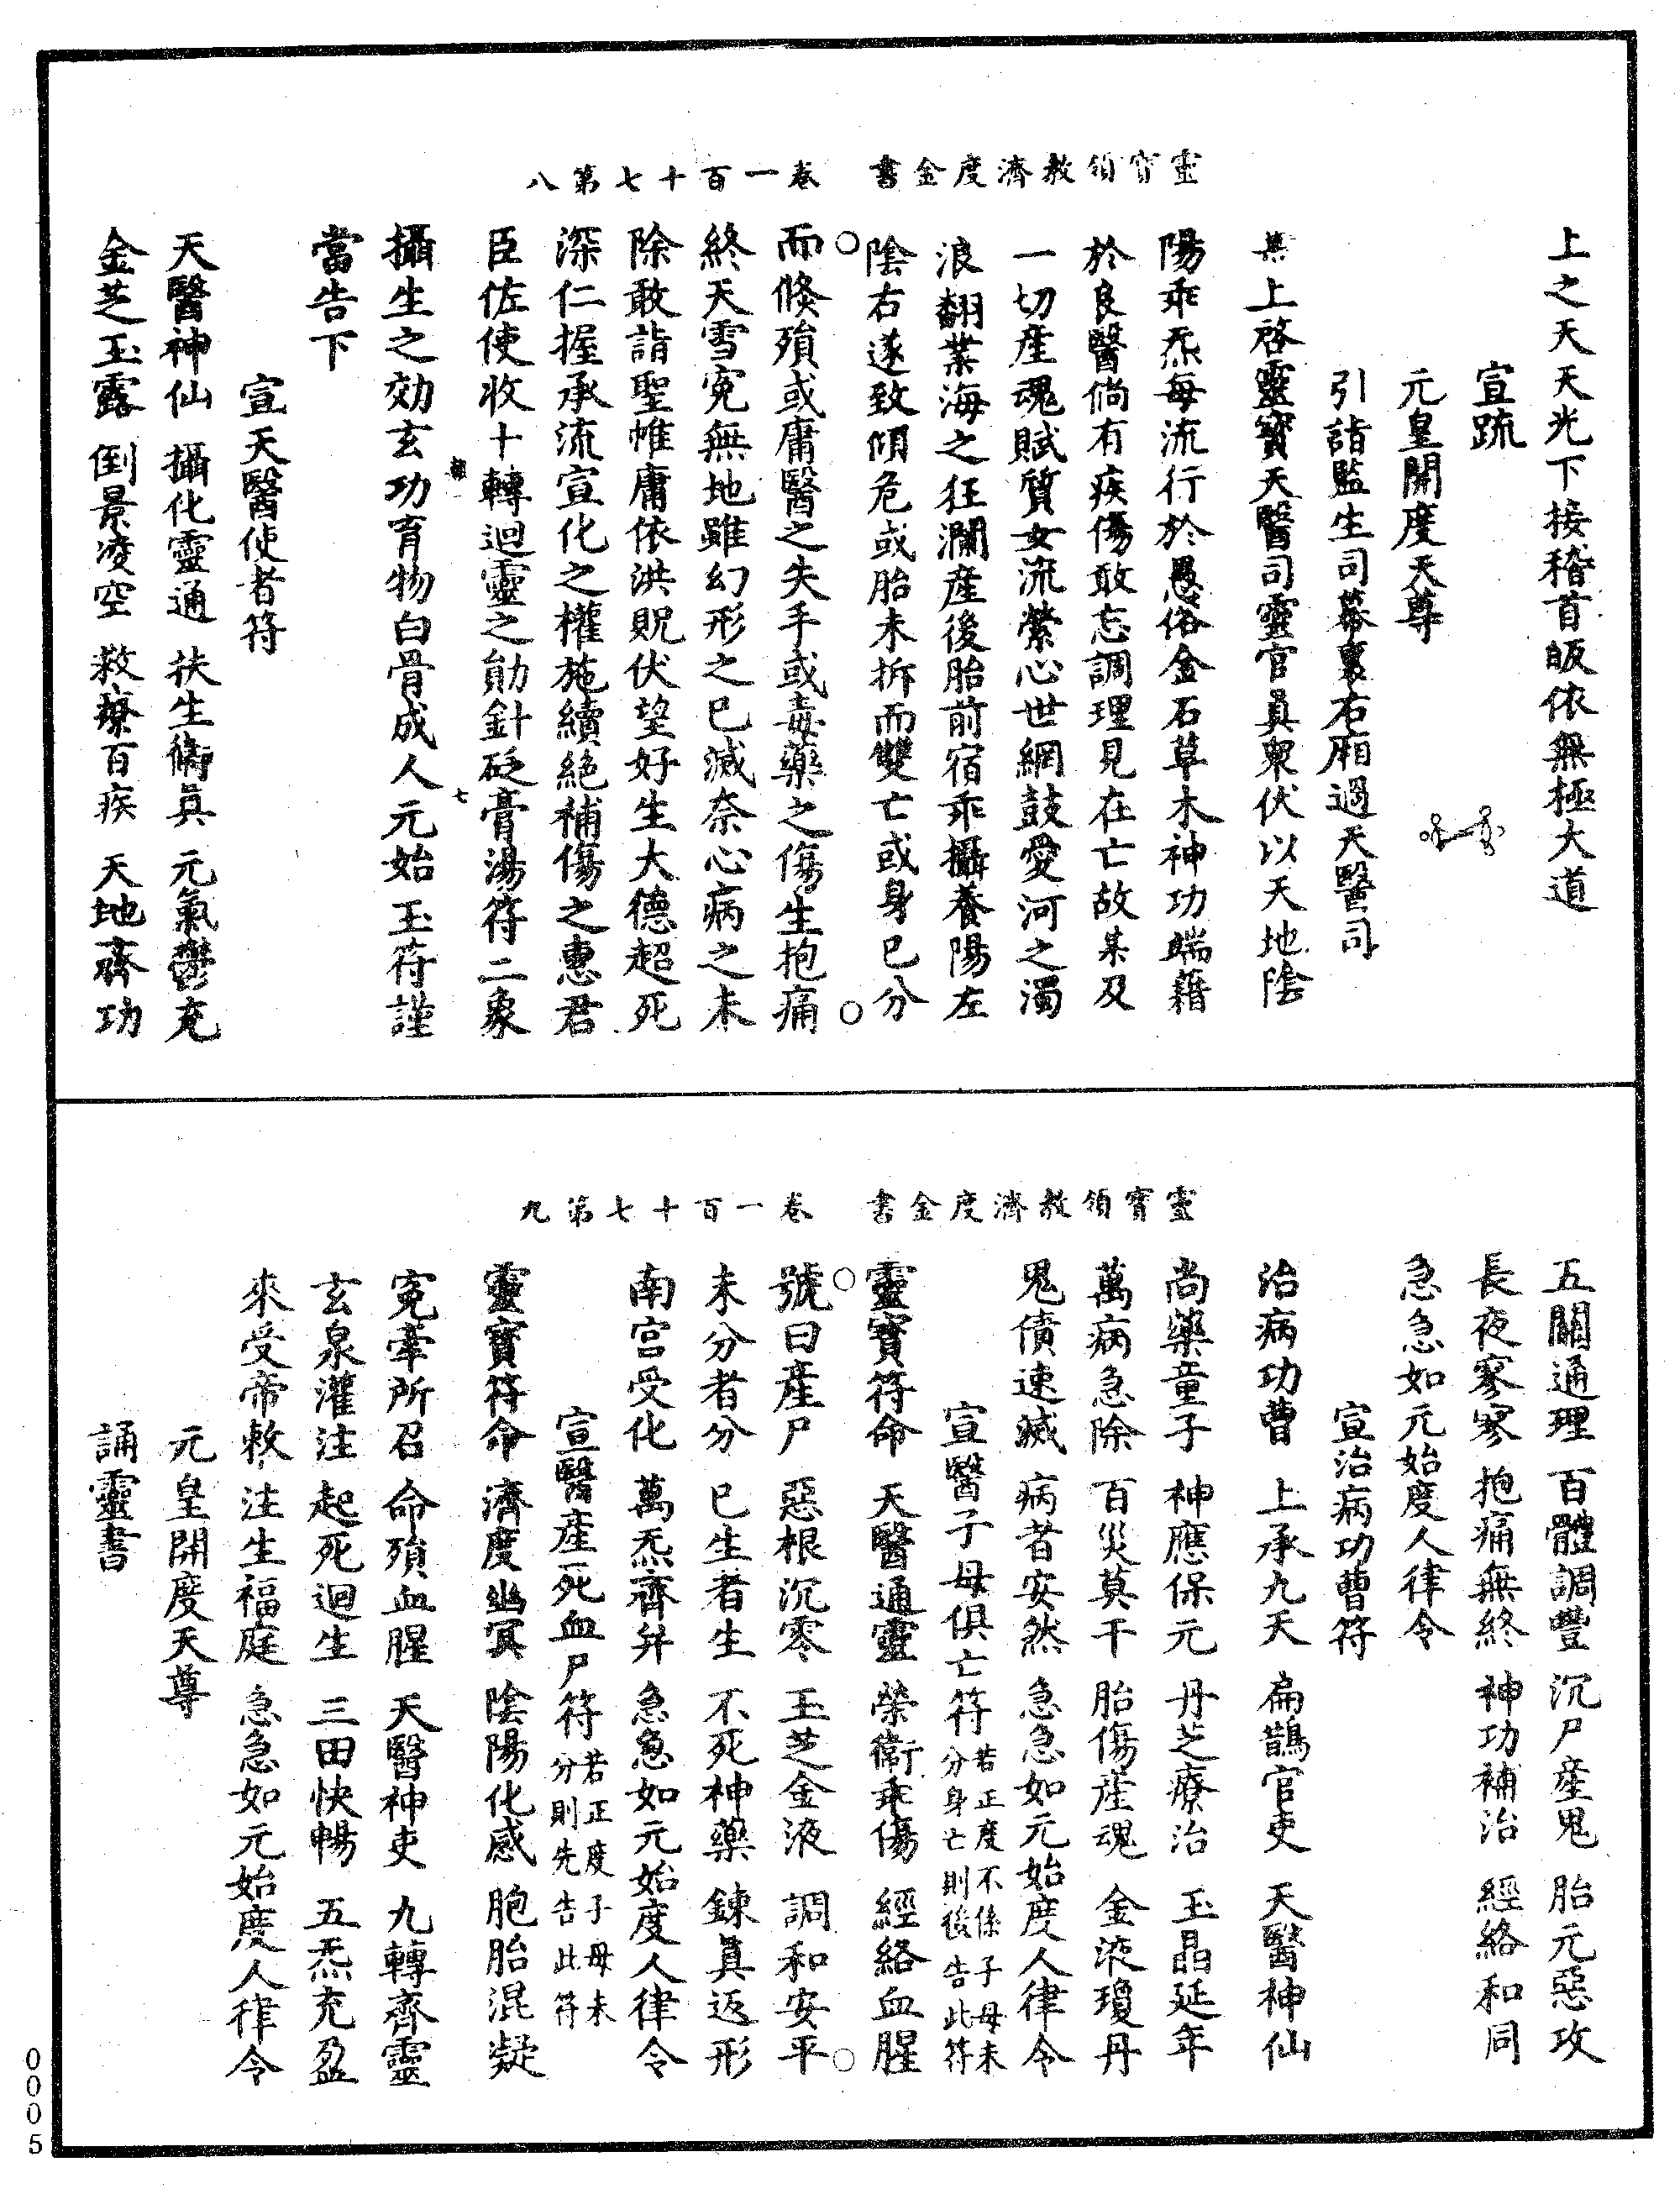 靈寳領教濟度金書　卷一百十七第八
上之天天光下接稽首皈依無極大道
宣疏
元皇開度天尊
引詣監生司幕裏右廂過天醫司
具上啓靈寳天醫司靈官眞衆伏以天地陰
陽乖炁每流行於愚俗金石草木神功端藉
於良醫倘有疾傷敢忘調理見在亡故某及
一切産魂賦質女流縈心世網鼓愛河之濁
浪翻業海之狂瀾産後胎前宿乖攝養陽左
陰右遂致傾危或胎未拆而雙亡或身已分
而倏殞或庸醫之失手或毒藥之傷生抱痛
終天雪寃無地雖幻形之已滅奈心病之未
除敢詣聖帷庸依洪貺伏望好生大德超死
深仁握承流宣化之權施續絶補傷之惠君
臣佐使收十轉迴靈之勛針砭膏湯符二象
七
攝生之効玄功育物白骨成人元始玉符謹
當告下
宣天醫使者符
天醫神仙　攝化靈通　扶生衛眞　元氣鬱充
金芝玉露　倒景凌空　救療百疾　天地齊功
靈寳領教濟度金書　卷一百十七第九
五關通理　百體調豐　沉尸産鬼　胎元惡攻
長夜寥寥　抱痛無終　神功補治　經絡和同
急急如元始度人律令
宣治病功曹符
治病功曹　上承九天　扁鵲官吏　天醫神仙
尚藥童子　神應保元　丹芝療治　玉晶延年
萬病急除　百災莫干　胎傷産魂　金液瓊丹
鬼債速滅　病者安然　急急如元始度人律令
宣醫子母俱亡符若正度不係子母未分身亡則後告此符
靈寳符命　天醫通靈　榮衛乖傷　經絡血腥
號曰産尸　惡根沉零　玉芝金液　調和安平
未分者分　已生者生　不死神藥　鍊眞返形
南宫受化　萬炁齊并　急急如元始度人律令
宣醫産死血尸符若正度子母未分則先告此符
靈寳符命　濟度幽冥　陰陽化感　胞胎混凝
寃牽所召　命殞血腥　天醫神吏　九轉齊靈
玄泉灌注　起死迴生　三田快暢　五炁充盈
來受帝敕　注生福庭　急急如元始度人律令
元皇開度天尊
誦靈書
0005